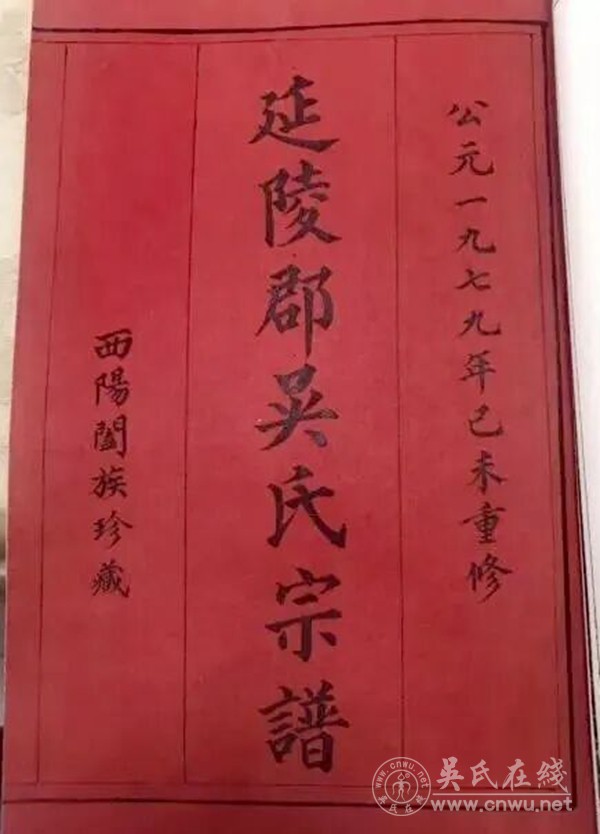 公元一九七九年己未重修
延陵郡吴氏宗譜
西陽闔族珍藏
吴氏在线
www.cnwu.net